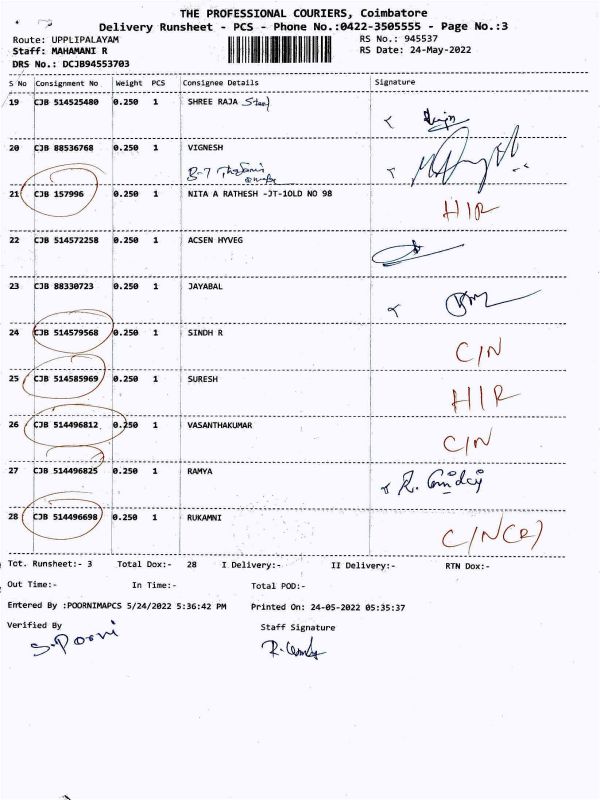 THE PROFESSIONAL COURIERS, Coimbatore
Delivery Runsheet - PCS - Phone No.:0422-3505555 - Page No.:3
Route: UPPLIPALAYAM RS No.: 945537
Staff: MAHAMANI R RS Date: 24-May-2022
DRS No.: DCJB94553703
S No Consignment No Weight PCS Consignee Details Signature
19 CJB 514525480 0.250 1 SHREE RAJA Steel
20 CJB 88536768 0.250 1 VIGNESH
B-7
21 CJB 157996 0.250 1 NITA A RATHESH -JT-1OLD NO 98 HIR
22 CJB 514572258 0.250 1 ACSEN HYVEG
23 CJB 88330723 0.250 1 JAYABAL
24 CJB 514579568 0.250 1 SINDH R C/N
25 CJB 514585969 0.250 1 SURESH HIR
26 CJB 514496812 0.250 1 VASANTHAKUMAR C/N
27 CJB 514496825 0.250 1 RAMYA R.
28 CJB 514496698 0.250 1 RUKAMNI C/N(R)
Tot. Runsheet:- 3 Total Dox:- 28 I Delivery:- II Delivery:- RTN Dox:-
Out Time:- In Time:- Total POD:-
Entered By :POORNIMAPCS 5/24/2022 5:36:42 PM Printed On: 24-05-2022 05:35:37
Verified By Staff Signature
S.Poorni R.